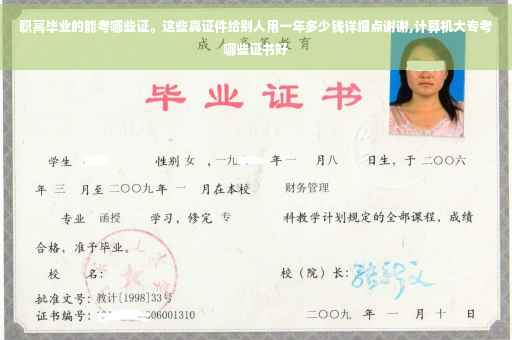 职高毕业的能考哪些证。这些真证件给别人用一年多少钱详细点谢谢,计算机大专考
哪些证书好
成人高等教育
毕业证书
学生 性别 女 ,一九 年 一 月八 日生，于二〇〇六
年 三 月至二〇〇九年 一 月在本校 财务管理
专业 函授 学习，修完 专 科教学计划规定的全部课程，成绩
合格，准予毕业。
校 名： 校（院）长：
批准文号：教计[1998]33号
证书编号： 06001310 二〇〇九 年 一 月 十 日